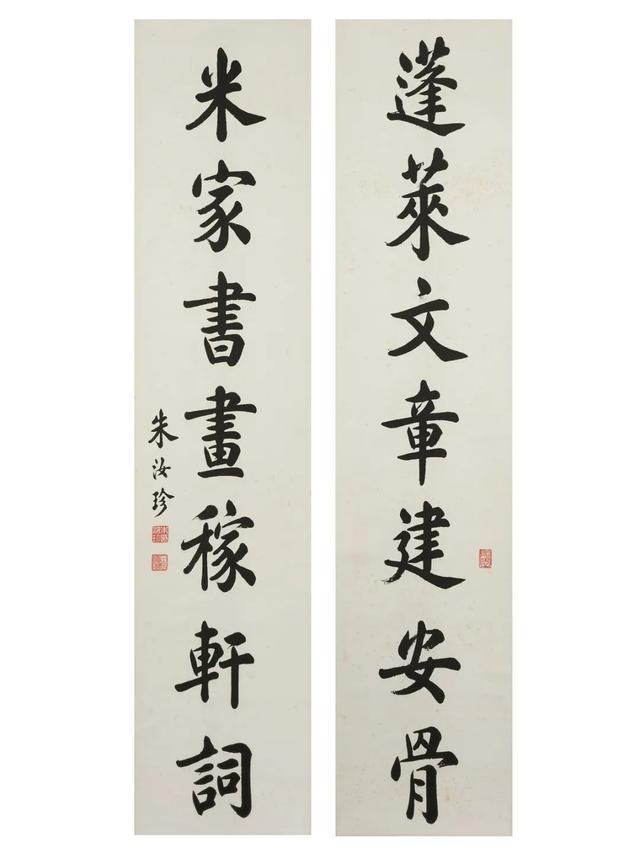 蓬萊文章建安骨
米家書畫稼軒詞
朱汝珍